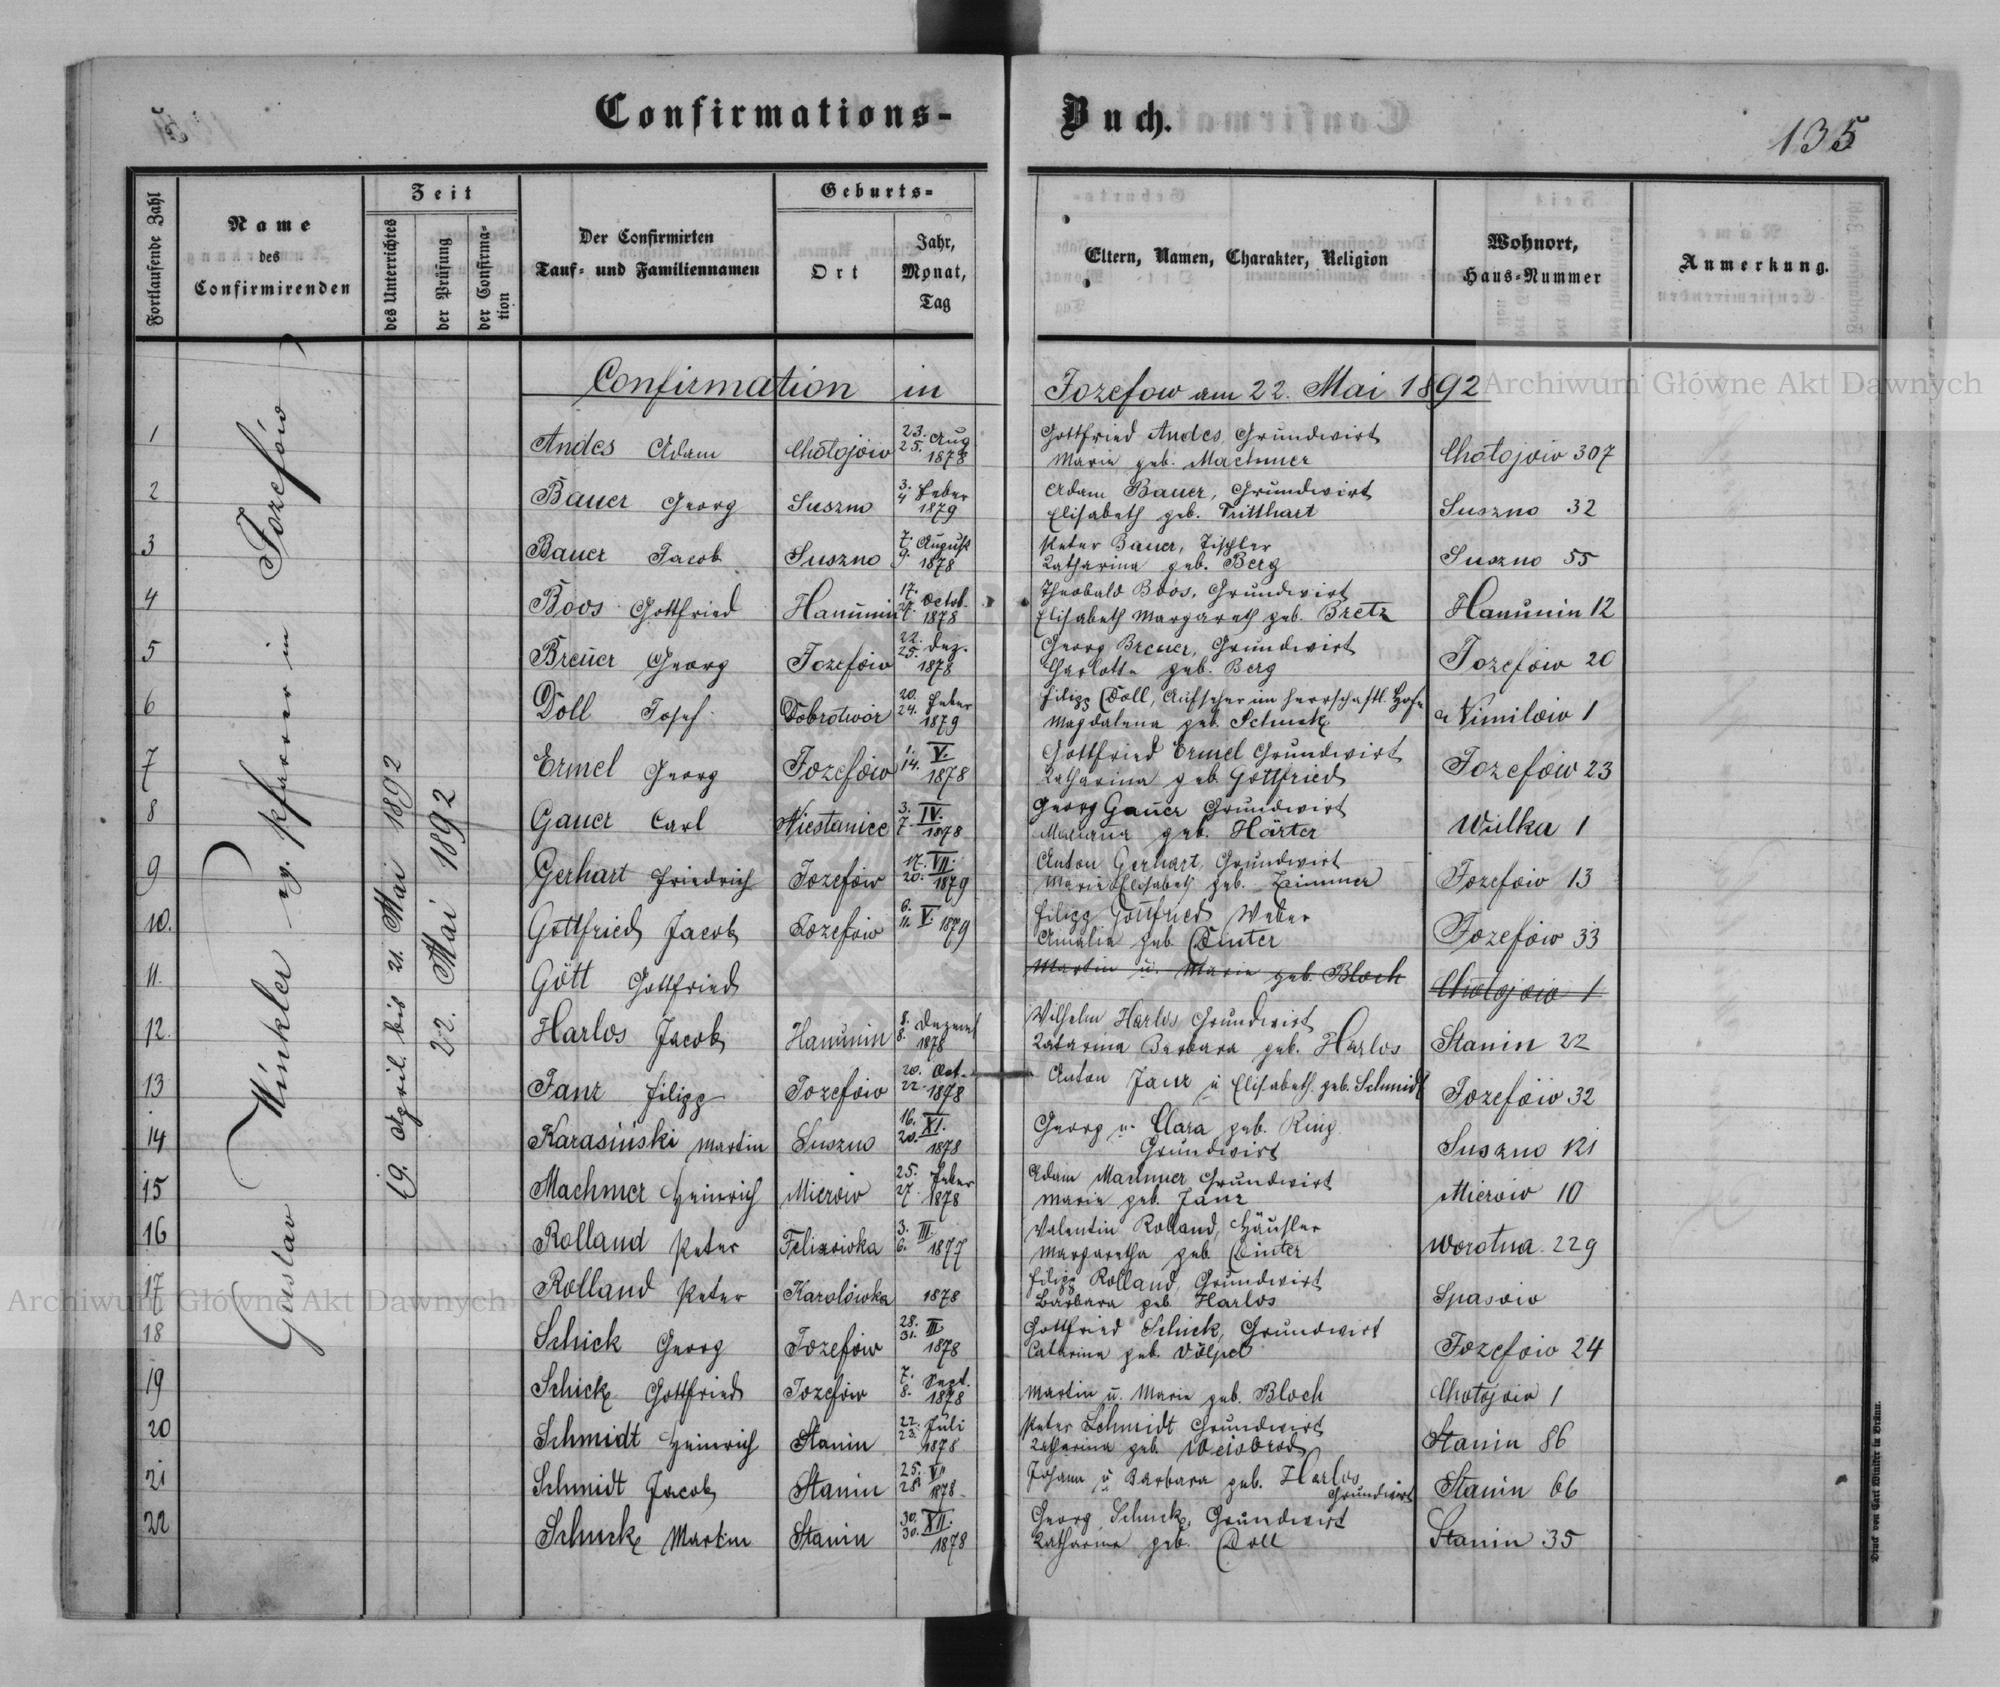 Confirmations-Buch.
135
Fortlaufende Zahl
Name des Confirmirenden
Zeit
des Unterrichtes
der Prüfung
der Confirmation
Der Confirmirten Tauf- und Familiennamen
Geburts-
Ort
Jahr, Monat, Tag
Eltern, Namen, Charakter, Religion
Wohnort, Haus-Nummer
Anmerkung.
Gustav Winkler ev. Pfarrer in Jozefów
19. April bis 21. Mai 1892
22. Mai 1892
Confirmation in Jozefow am 22. Mai 1892
1 Andes Adam Chołojów 23. 25. Aug 1878 Gottfried Andes, Grundwirt Chołojów 307
Marie geb. Machmer
2 Bauer Georg Suszno 3. 4 Feber 1879 Adam Bauer, Grundwirt Suszno 32
Elisabeth geb. Tritthart
3 Bauer Jacob Suszno 7. 9. August 1878 Peter Bauer, Tischler Suszno 55
Katharina geb. Berg
4 Boos Gottfried Hanunin 17. 27. Octob. 1878 Theobald Boos, Grundwirt Hanunin 12
Elisabeth Margareth geb. Bretz
5 Breuer Georg Jozefów 22. 25. Dez. 1878 Georg Breuer, Grundwirt Jozefów 20
Charlotte geb. Berg
6 Doll Josef Dobrotwór 20. 24. Feber 1879 Filipp Doll, Aufseher im herrschaftl. Hofe Nimilów 1
Magdalena geb. Schuck
7 Ermel Georg Jozefów 1. 14. V. 1878 Gottfried Ermel Grundwirt Jozefów 23
Katharina geb. Gottfried
8 Gauer Carl Niestanice 3. 7. IV. 1878 Georg Gauer Grundwirt Wulka 1
geb. Härter
9 Gerhart Friedrich Jozefów 17. 20. VII. 1879 Anton Gerhart, Grundwirt Jozefów 13
Marie Elisabeth geb. Zimmer
10. Gottfried Jacob Jozefów 6. 11. V. 1879 Filipp Gottfried Weber Jozefów 33
Amalia geb. Dinter
11. Gött Gottfried Martin u. Marie geb. Bloch Chołojów 1
12. Harlos Jacob Hanunin 8. 8. Dezemb 1878 Wilhelm Harlos Grundwirt Stanin 22
Katarina Barbara geb. Harlos
13 Janz Filipp Jozefów 20. 22. Oct. 1878 Anton Janz u Elisabeth geb. Schmidt Jozefów 32
14 Karasiński Martin Suszno 16. 20. XI. 1878 Georg u. Clara geb. Ring. Suszno 121
Grundwirt
15 Machmer Heinrich Mierów 25. 27. Feber 1878 Adam Machmer Grundwirt Mierów 10
Marie geb. Janz
16 Rolland Peter 3. 6. III. 1877 Valentin Rolland, Häusler Worotna 229
Margaretha geb. Dinter
17 Rolland Peter Karolówka 1878 Filipp Rolland, Grundwirt Spasów
Barbara geb. Harlos
18 Schick Georg Jozefów 28. 31. III 1878 Gottfried Schick, Grundwirt Jozefów 24
Catarina geb. Völpel
19 Schick Gottfried Jozefów 7. 8. Sept. 1878 Martin u. Marie geb. Bloch Chołojów 1
20 Schmidt Heinrich Stanin 22. 23. Juli 1878 Peter Schmidt Grundwirt Stanin 86
Katharina geb. Weisbrod
21 Schmidt Jacob Stanin 25. 28. 1878 Johann u Barbara geb. Harlos Stanin 66
Grundwirt
22 Schuck Martin Stanin 30. 30. XII. 1878 Georg Schuck, Grundwirt Stanin 35
Katharina geb. Doll
Druck von Carl Winiker in Brünn.
Archiwum Główne Akt Dawnych
Archiwum Główne Akt Dawnych